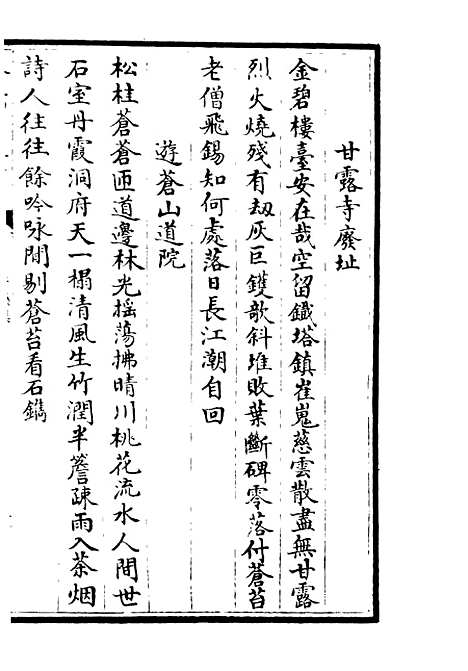 甘露寺廢址
金碧樓臺安在哉空留鐵塔鎮崔嵬慈雲散盡無甘露
烈火燒殘有刼灰巨鑊欹斜堆敗葉斷碑零落付蒼苔
老僧飛錫知何處落日長江潮自回
遊蒼山道院
松桂蒼蒼匝道邊林光揺蕩拂晴川桃花流水人間世
石室丹霞洞府天一榻清風生竹澗半簷疎雨入茶烟
詩人往往餘吟咏閒剔蒼苔看石鐫